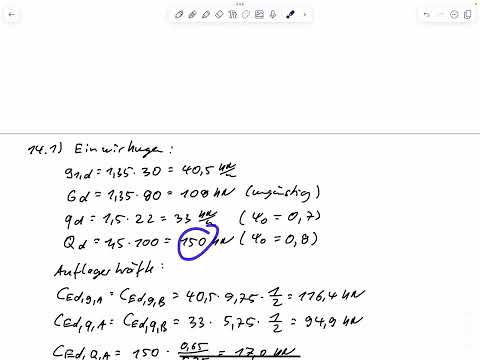 14.1) Einwirkungen:
g1,d = 1,35 · 30 = 40,5 kN/m
Gd = 1,35 · 80 = 108 kN (ungünstig)
qd = 1,5 · 22 = 33 kN/m (ψ0 = 0,7)
Qd = 1,5 · 100 = 150 kN (ψ0 = 0,8)
Auflagerkräfte:
CEd,g,A = CEd,g,B = 40,5 · 5,75 · 1/2 = 116,4 kN
CEd,q,A = CEd,q,B = 33 · 5,75 · 1/2 = 94,9 kN
CEd,Q,A = 150 · 0,65 = 17,0 kN